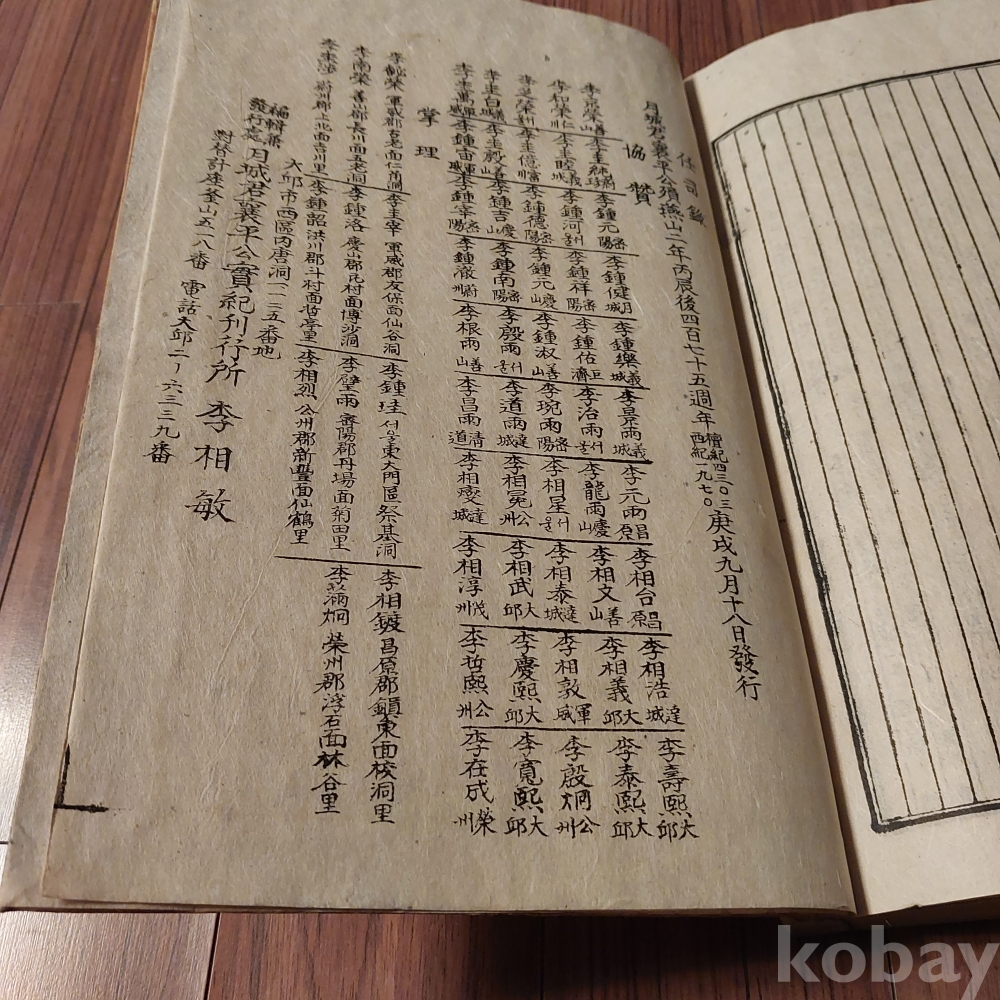 任司錄
月城君襄平公殞燕山二年丙辰後四百七十五週年 檀紀四三〇三 西紀一九七〇 庚戌九月十八日發行
協贊
李鍾元 密陽 李鍾健 月城 李鍾樂 義城 李景雨 義城 李元雨 昌原 李相台 昌原 李相浩 達城 李壽熙 大邱
李鍾河 서울 李鍾祥 密陽 李鍾佑 巨濟 李治雨 서울 李龍雨 慶山 李相文 善山 李相義 大邱 李泰熙 大邱
李和榮 李圭睦 義城 李鍾德 密陽 李鍾元 慶山 李鍾淑 善山 李琬雨 密陽 李相星 서울 李相泰 達城 李相敦 軍威 李殷炯 公州
李圭億 李鍾吉 慶山 李鍾南 密陽 李殷雨 서울 李道雨 達城 李相冕 公州 李相武 大邱 李慶熙 大邱 李寬熙 大邱
李圭萬 軍威 李鍾宙 軍威 李鍾宰 密陽 李鍾澈 蔚州 李根雨 善山 李昌雨 清道 李相燮 達城 李相淳 茂州 李哲熙 公州 李在成 榮州
掌理
軍威郡古老面仁谷洞 李圭宰 軍威郡友保面仙谷洞 李鍾珪 서울東大門區祭基洞 李相鍍 昌原郡鎭東面校洞里
李南榮 善山郡長川面五老洞 李鍾洛 慶山郡瓦村面博沙洞 李璧雨 密陽郡丹場面菊田里 榮州郡浮石面林谷里
蔚州郡上北面吉川里 李鍾韶 洪川郡斗村面哲亭里 李相烈 公州郡新豊面仙鶴里
大邱市西區內唐洞一一三五番地
編輯兼發行處 月城君襄平公實紀刊行所 李相敏
對替計座釜山五一八番 電話大邱二ー六三三九番
kobay